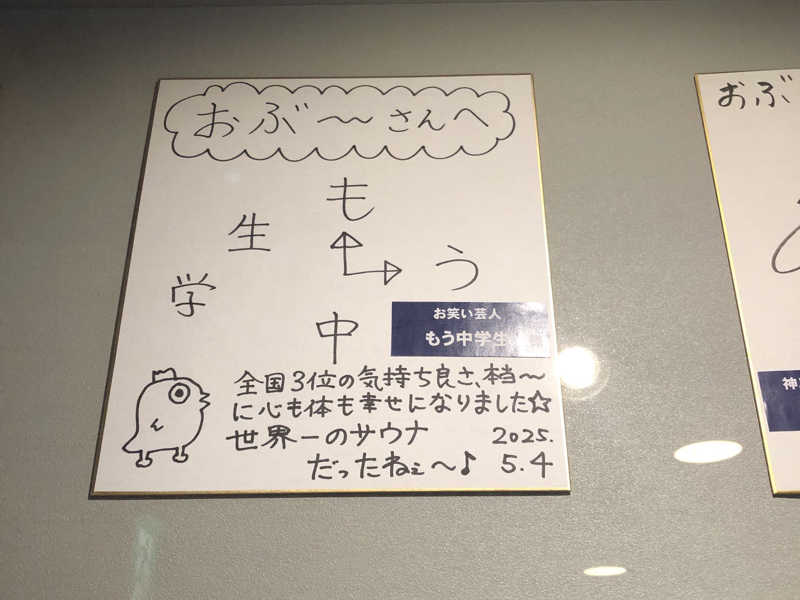 おぶ〜さんへ
も
う
中
学
生
お笑い芸人
もう中学生
全国3位の気持ち良さ、本当〜
に心も体も幸せになりました☆
世界一のサウナ
だったねぇ〜♪
2025.
5.4
おぶ
神